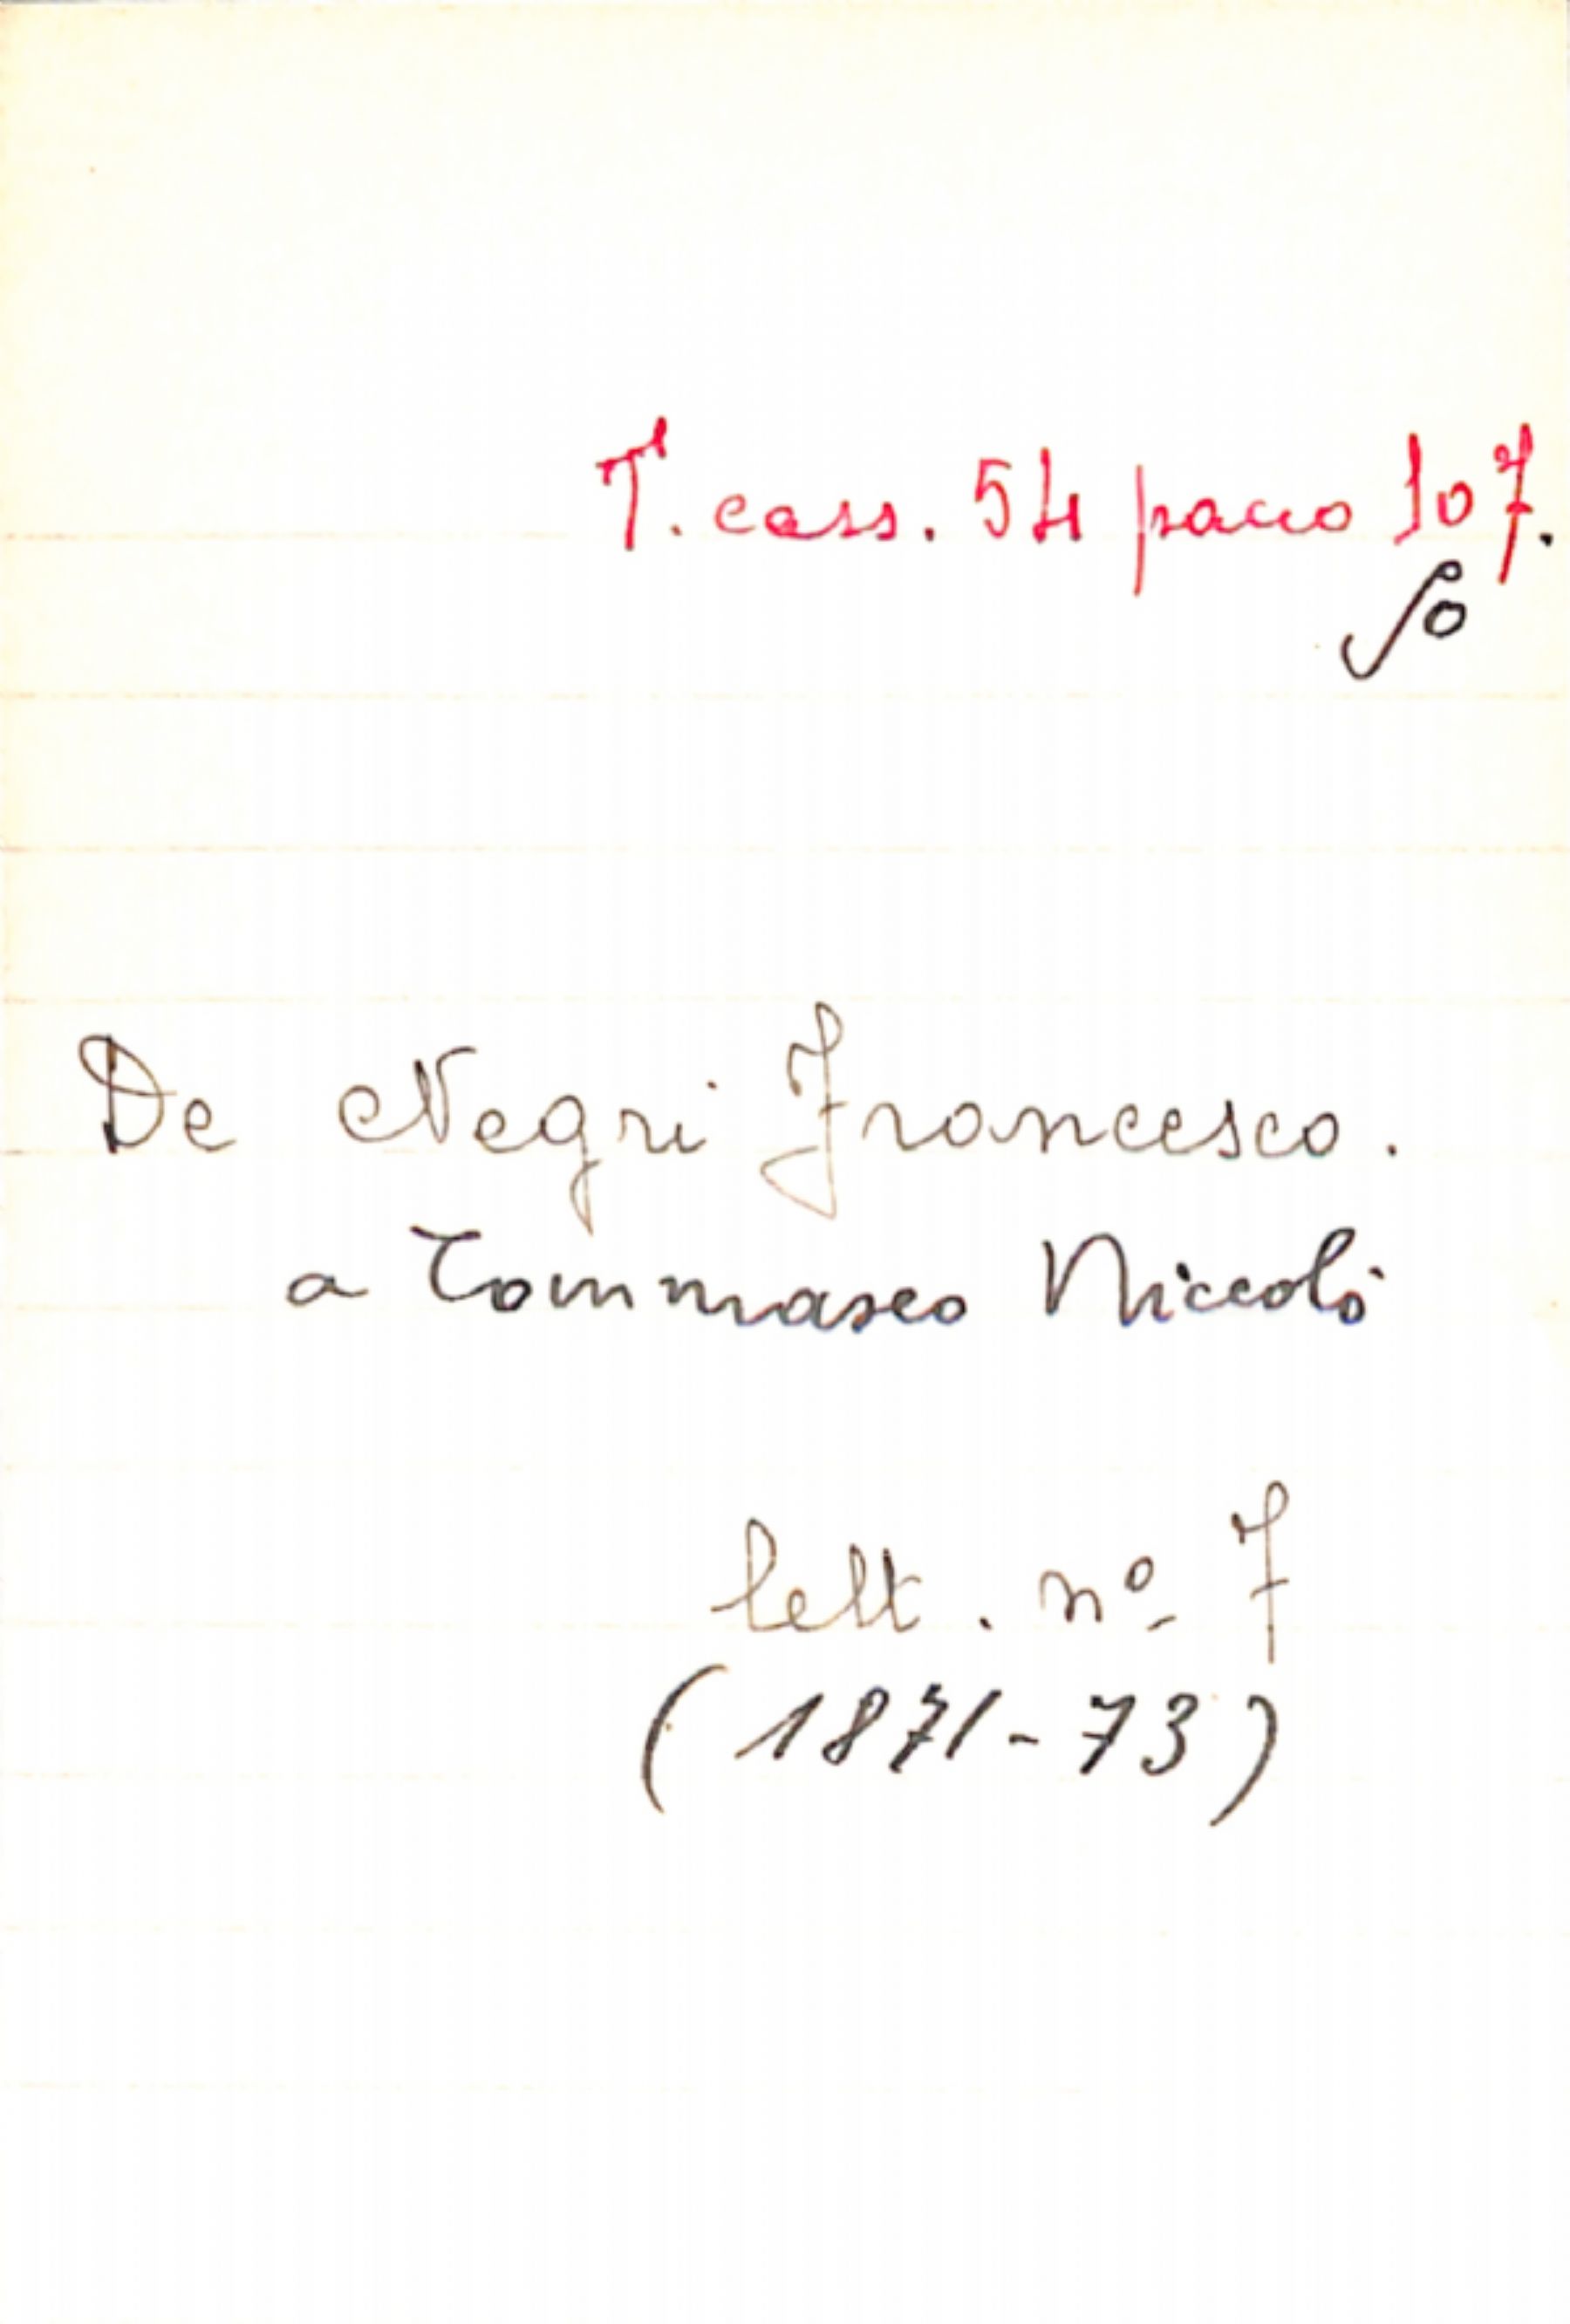 T. cass. 54 pacco 107.
De Negri Francesco.
a Tommaseo Niccolò
lett. nº 7
(1871-73)